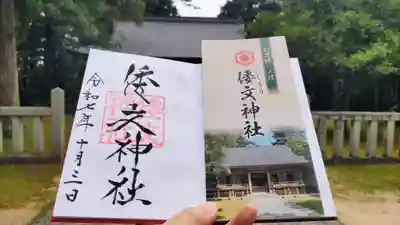 倭文神社
令和七年 十月三日
倭文神社
しとり